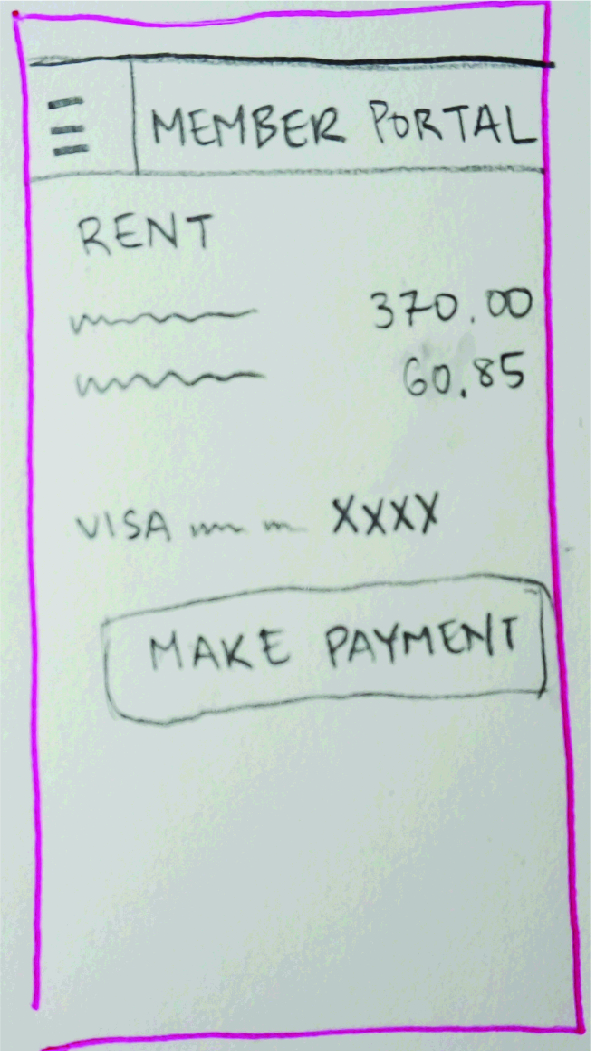 MEMBER PORTAL
RENT
370.00
60.85
VISA XXXX
MAKE PAYMENT